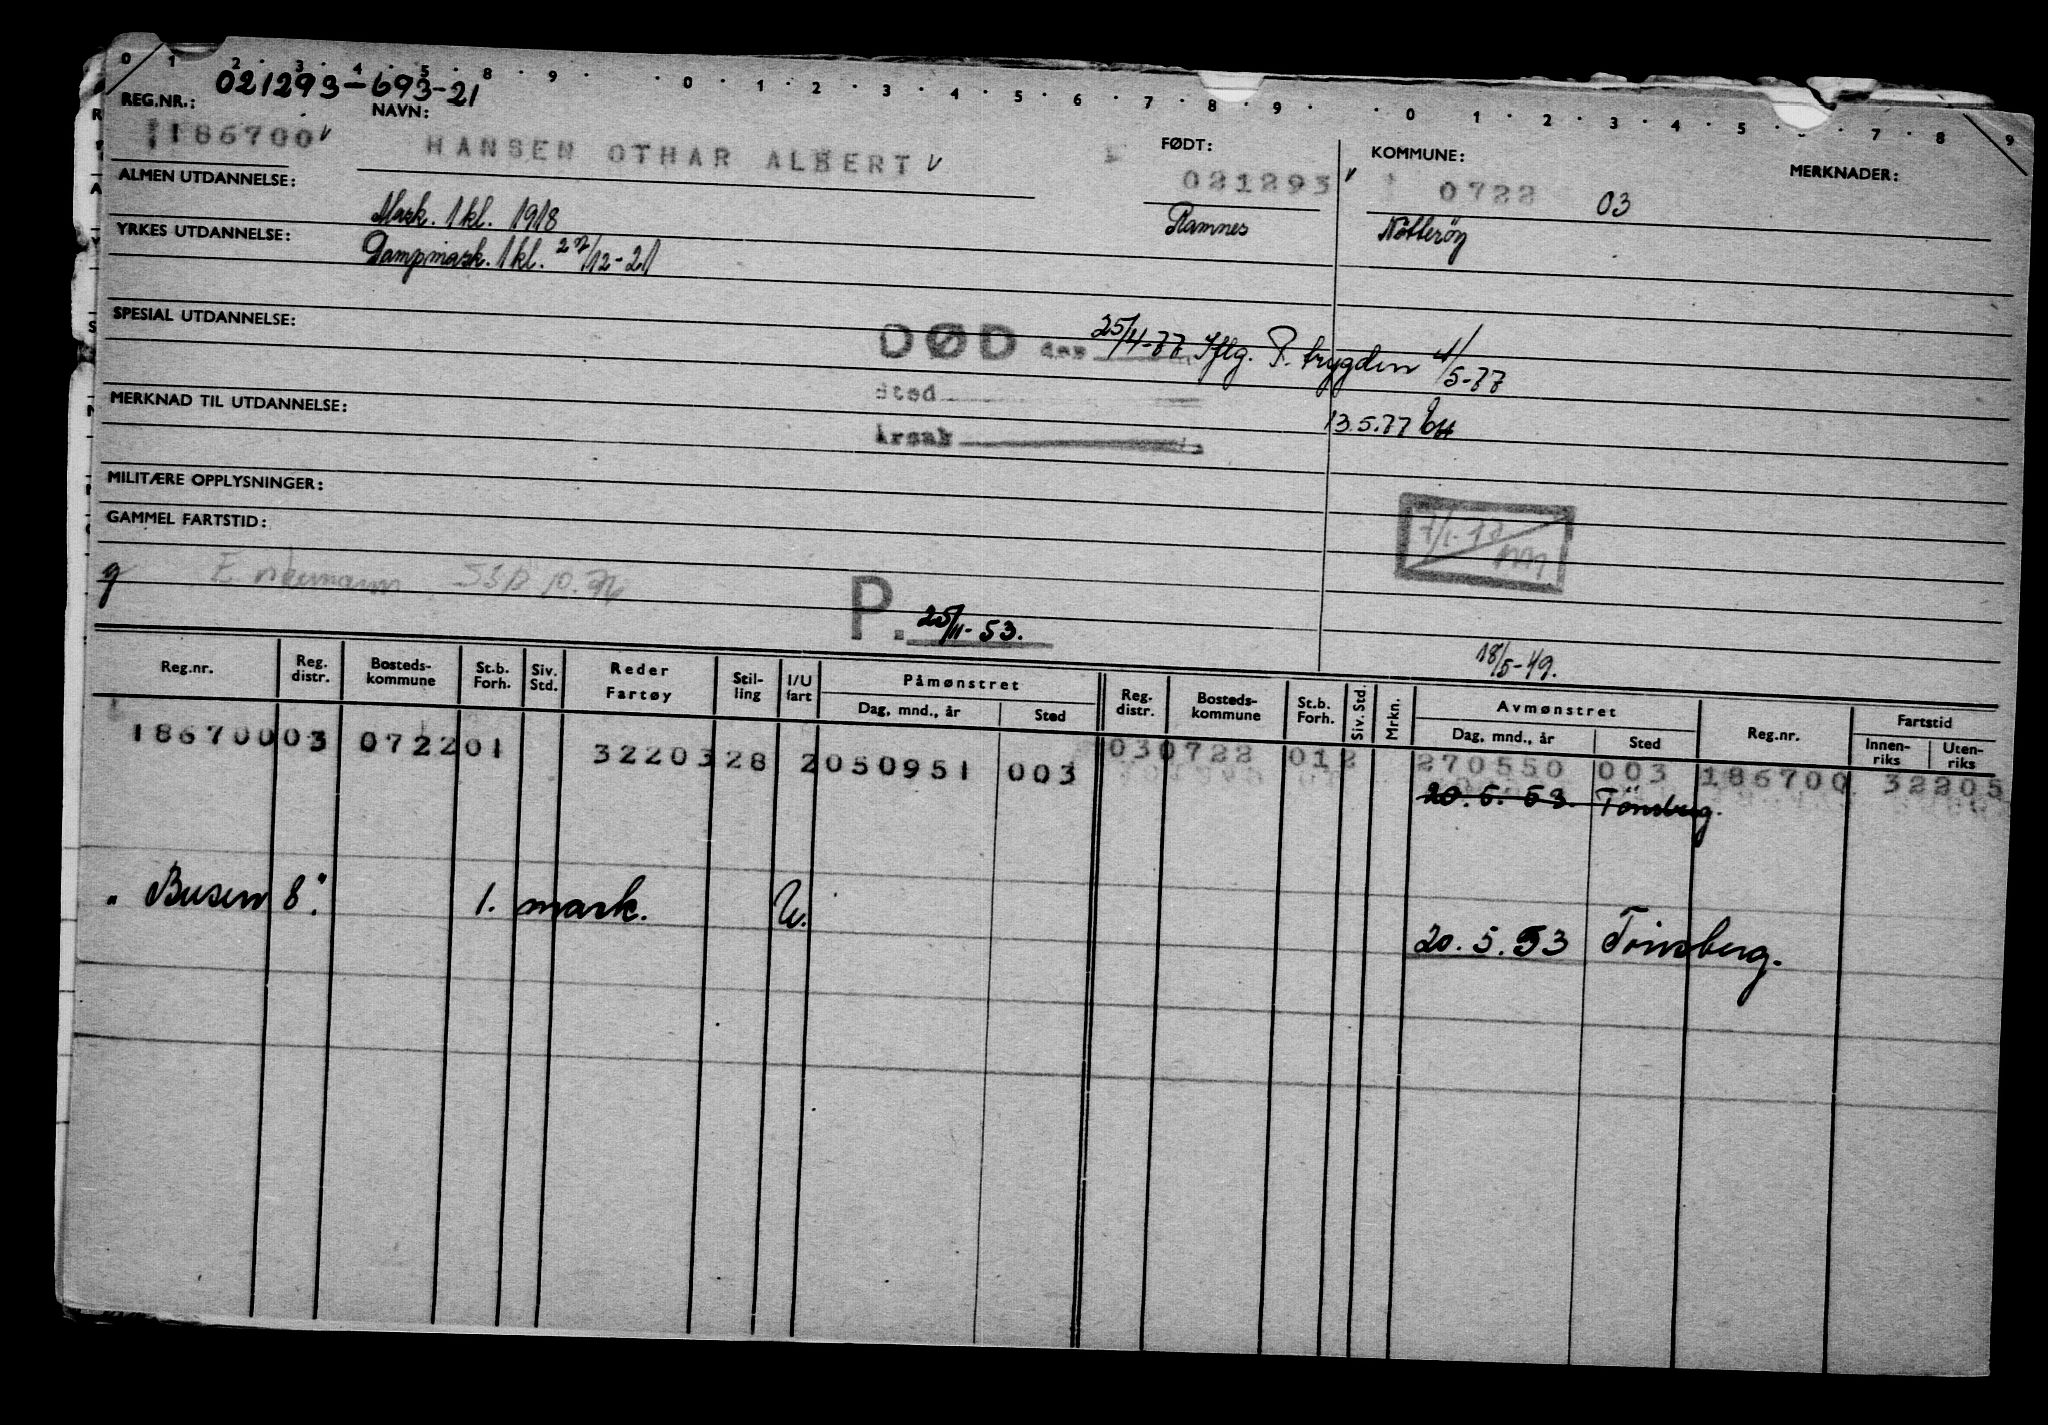 0 1 2 3 4 5 8 9 0 1 2 3 4 5 6 7 8 9 0 1 2 3 4 5 7 8 9
021293-693-21
REG.NR.: NAVN: FØDT: KOMMUNE: MERKNADER:
186700 HANSEN OTHAR ALBERT 021293 0722 03
ALMEN UTDANNELSE: Mask. 1kl. 1918 Ramnes Nötteröy
YRKES UTDANNELSE: Dampmask. 1kl. 27/12-21
SPESIAL UTDANNELSE:
DØD den 25/4-77 Iflg. P. trygden 4/5-77
Sted
MERKNAD TIL UTDANNELSE: 13.5.77
Årsak
MILITÆRE OPPLYSNINGER:
GAMMEL FARTSTID:
P. 25/11-53.
18/5-49.
Reg.nr. Reg. distr. Bosteds-kommune St.b. Forh. Siv. Std. Reder Fartøy Stil-ling I/U fart Påmønstret Dag, mnd., år Sted Reg. distr. Bosteds-kommune St.b. Forh. Siv. Std. Mrkn. Avmønstret Dag, mnd., år Sted Reg.nr. Fartstid Innen-riks Uten-riks
186700 03 0722 01 3220328 2 050951 003 03 0722 01 2 270550 003 186700 32205
20. 5. 53. Tönsberg.
"Busen 8." 1. mask. U. 20. 5. 53 Tönsberg.